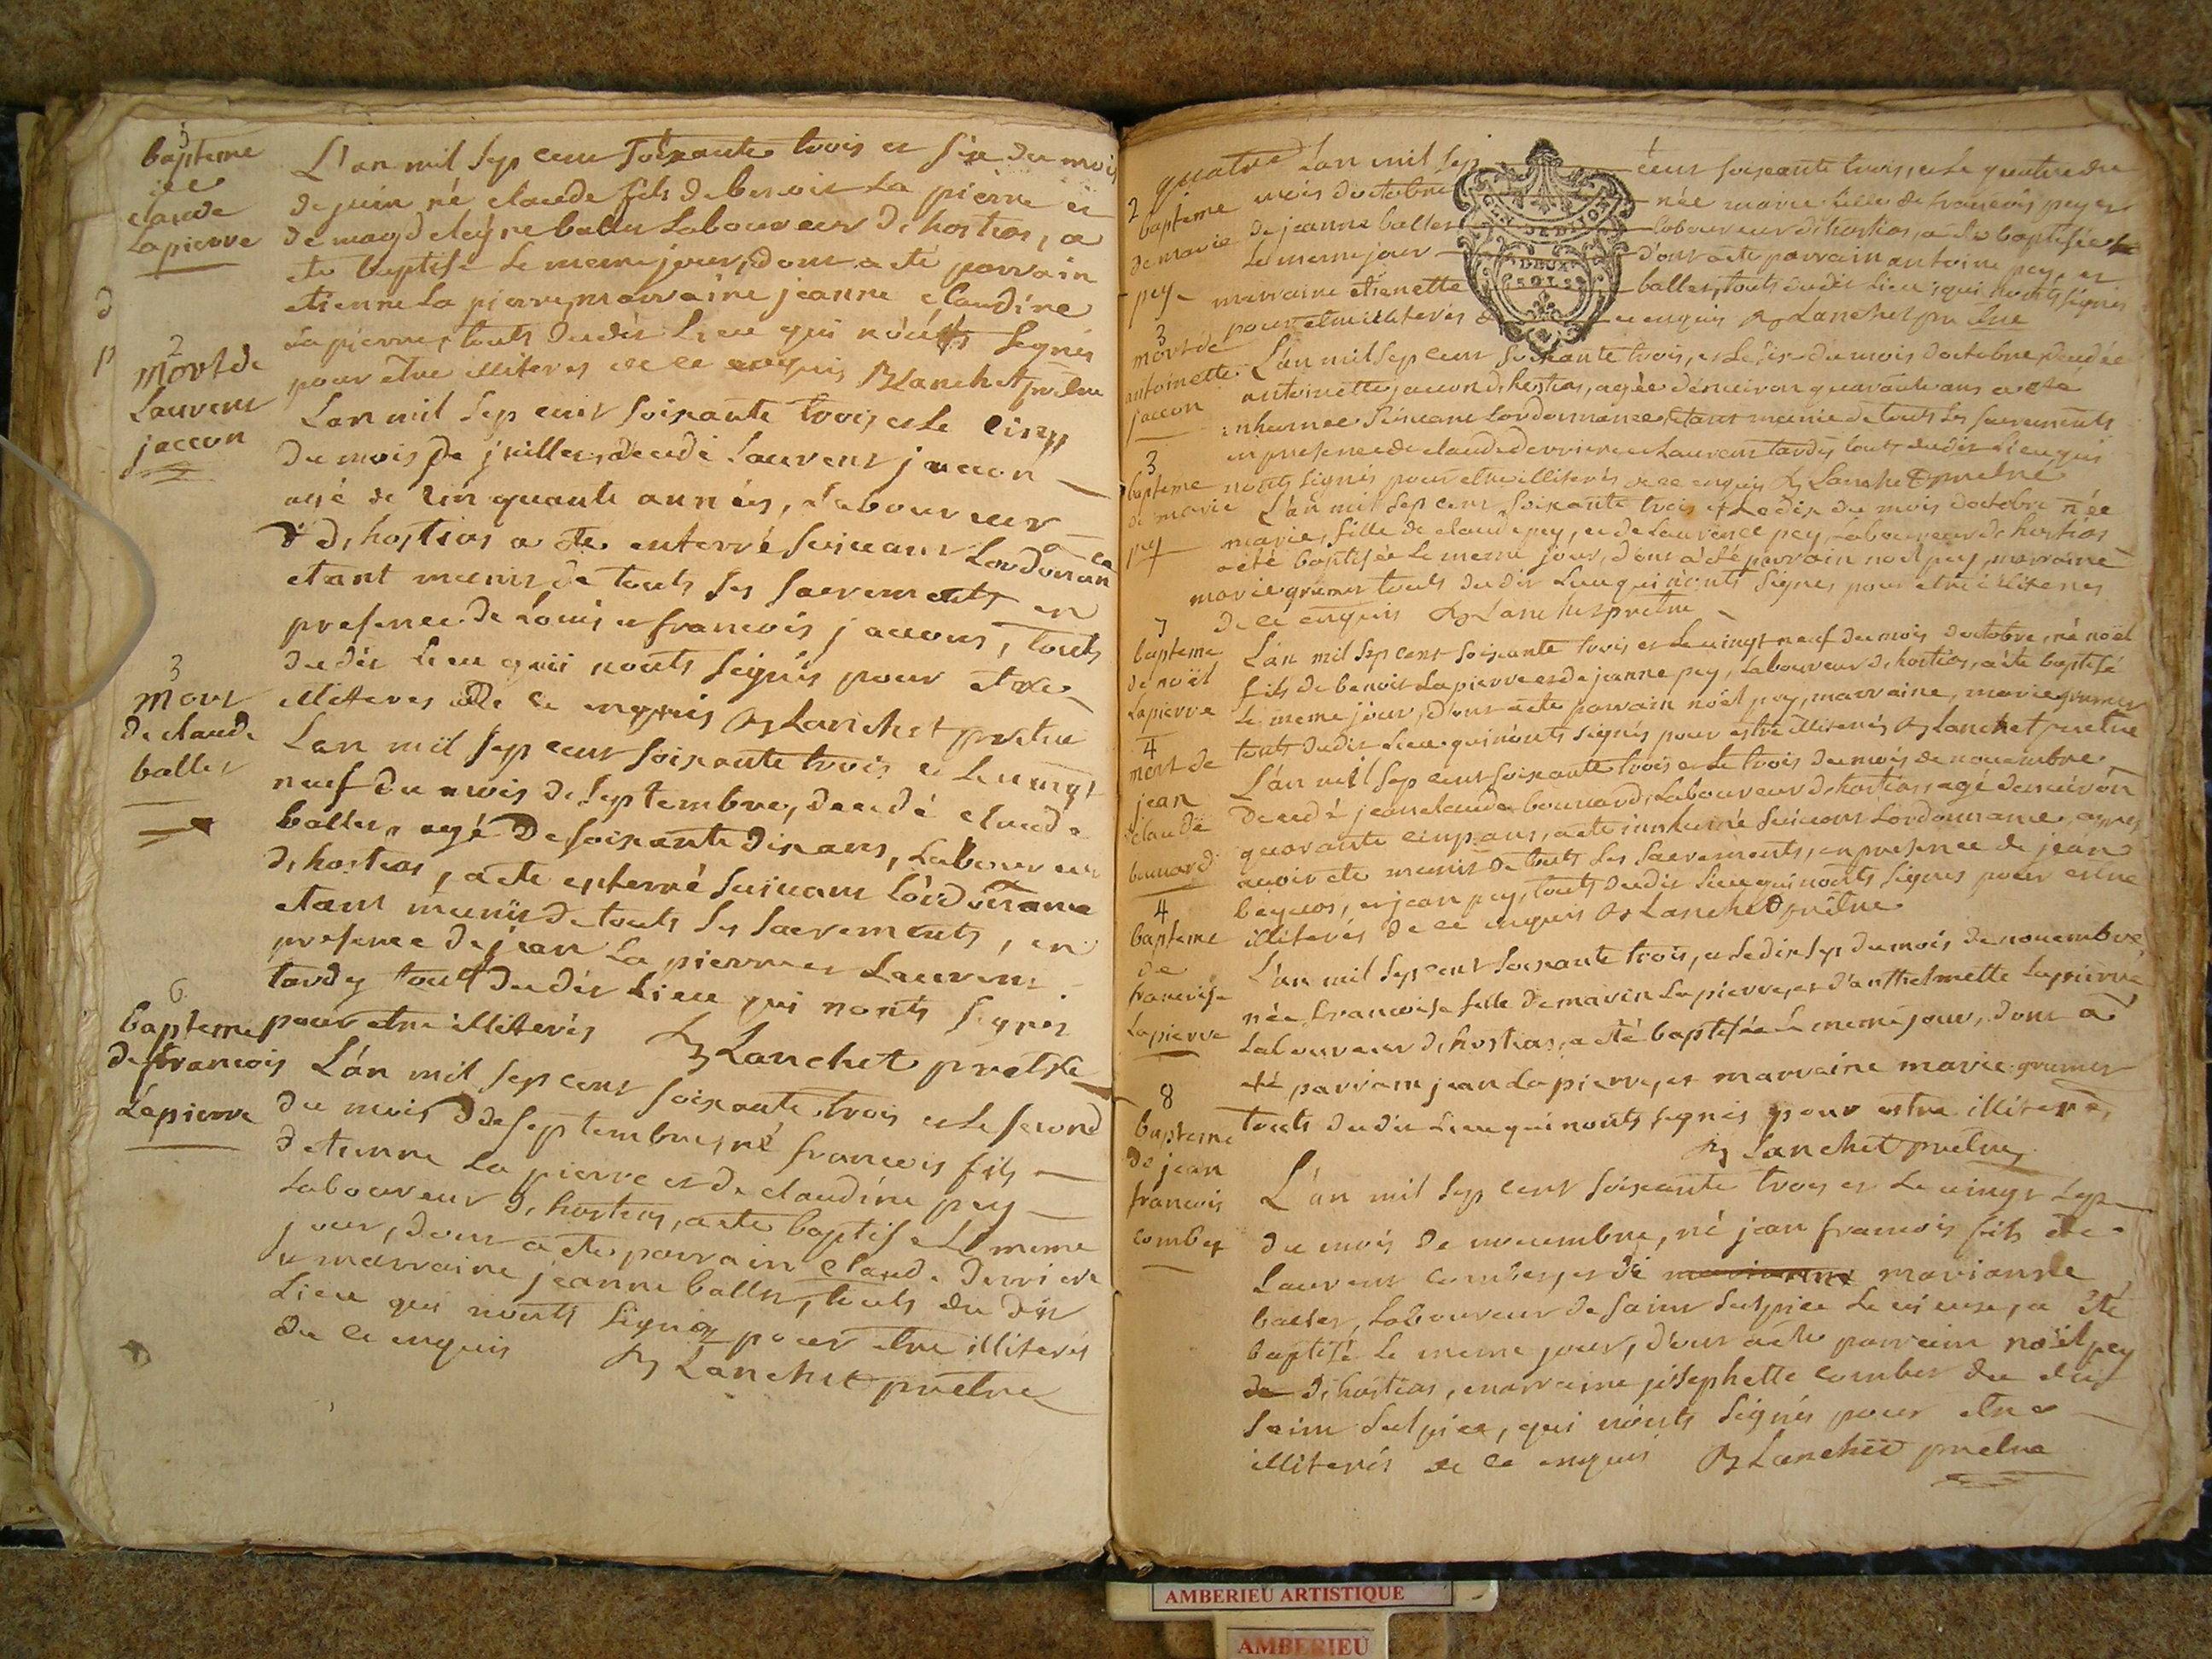 5
bapteme
de
claude
Lapierre
L'an mil sep cent soixante trois et six du mois
de juin né claude fils de benoit La pierre et
de magdeleyne ballet Laboureur d'hostias, a
ete baptisé Le meme jour, dont a ete parrain
etienne La pierre, marraine jeanne claudine
Lapierre, touts dudit Lieu qui n'onts signés
pour etre illiterés de ce enquis Blanchet pretre
2
Mort de
Laurent
jaccon
Lan mil sep cent soixante trois et le cinq
du mois de juillet, decedé Laurent jaccon
agé de cinquante années, Laboureur
d'hostias a ete enterré suivant Lordonnance
etant munis de touts ses sacrements en
presence de Louis et francois jaccons, touts
dudit Lieu qui nonts signés pour etre
illiteres de ce enquis Blanchet pretre
3
Mort
de claude
ballet
Lan mil sep cent soixante trois et le vingt
neuf du mois de septembre, decedé claude
ballet, agé de soixante dix ans, Laboureur
d'hostias, a ete enterré suivant L'ordonnance
etant munis de touts ses sacrements, en
presence de jean La pierre et Laurent
tardy tout dudit Lieu qui nonts signes
pour etre illiterés Blanchet pretre
6
bapteme
de francois
Lapierre
L'an mil sep cent soixante trois et le second
du mois de septembre, né francois fils
detienne La pierre et de claudine pey
Laboureur d'hostias, a ete baptisé Le meme
jour, dont a ete parrain claude derriere
et marraine jeanne ballet, touts du dit
Lieu qui nonts signez pour etre illiterés
de ce enquis Blanchet pretre
quatre Lan mil sep cent soixante trois, et Le quatre du
2
bapteme
de marie
pey
mois doctobre née marie fille de francois pey et
de jeanne ballet Laboureur d'hostias, a ete baptisée
Le meme jour d'ont a ete parrain antoine pey, et
marraine etienette ballet, touts dudit Lieu, qui nonts signés
pour etre illiterés de ce enquis Blanchet pretre
GEN DE DIJON
DEUX
SOLS
3
mort de
antoinette
jaccon
L'an mil sep cent soixante trois, et Le dix du mois doctobre decedée
antoinette jaccon d'hostias, agée d'environ quarante ans a ete
inhumée suivant Lordonnance, etant munie de touts ses sacrements
en presence de claude derriere et Laurent tardy touts dudit Lieu, qui
nonts signés pour etre illiterés de ce enquis Blanchet pretre
3
bapteme
de marie
pey
L'an mil sep cent soixante trois et Le dix du mois doctobre née
marie, fille de claude pey, et de Laurence pey, Laboureur d'hostias
a été baptisée Le meme jour, d'ont a été parrain noel pey, marraine
marie grumet touts dudit Lieu qui n'onts signes pour etre illiteres
de ce enquis Blanchet pretre
7
bapteme
de noël
Lapierre
L'an mil sep cent soixante trois et Le vingt neuf du mois doctobre, né noël
fils de benoit Lapierre et de jeanne pey, Laboureur d'hostias, a ete baptisé
Le meme jour, d'ont a ete parrain noël pey, marraine, marie grumet
touts dudit Lieu qui nonts signés pour estre illiterés Blanchet pretre
4
mort de
jean
claude
bouvard
L'an mil sep cent soixante trois et Le trois du mois de novembre
Decedé jean claude bouvard, Laboureur d'hostias, agé d'environ
quarante cinq ans, a ete inhumé suivant Lordonnance, apres
avoir ete munis de touts ses sacrements, en presence de jean
, et jean pey, touts dudit Lieu qui nonts signés pour estre
illiterés de ce enquis Blanchet pretre
4
bapteme
de
francoise
Lapierre
L'an mil sep cent soixante trois, et Le dix sep du mois de novembre
née francoise fille de marin Lapierre, et d'anthelmette Lapierre
Laboureur d'hostias, a eté baptisée Le meme jour, dont a
eté parrain jean Lapierre, et marraine marie grumet
touts dudit Lieu qui nonts signés pour estre illiterés,
Blanchet pretre
8
bapteme
de jean
francois
combet
L'an mil sep cent soixante trois et Le vingt sep
du mois de novembre, né jean francois fils de
Laurent combet, et de marianne marianne
ballet, Laboureur de saint sulpice Le vieux, a été
baptisé Le meme jour, d'ont a ete parrain noël pey
de d'hostias, marraine josephette combet du dit
saint sulpice, qui n'onts signés pour etre
illiterés de ce enquis Blanchet pretre
AMBERIEU ARTISTIQUE
AMBERIEU